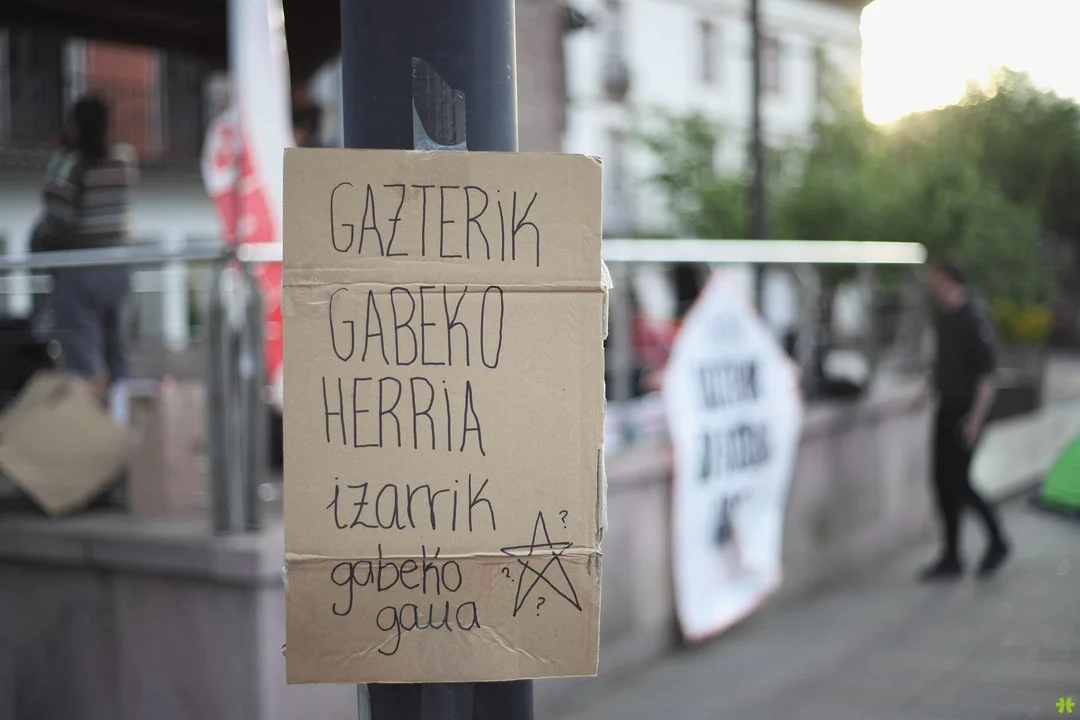 GAZTERIK
GABEKO
HERRIA
izarrik
gabeko
gaua
?
?
?